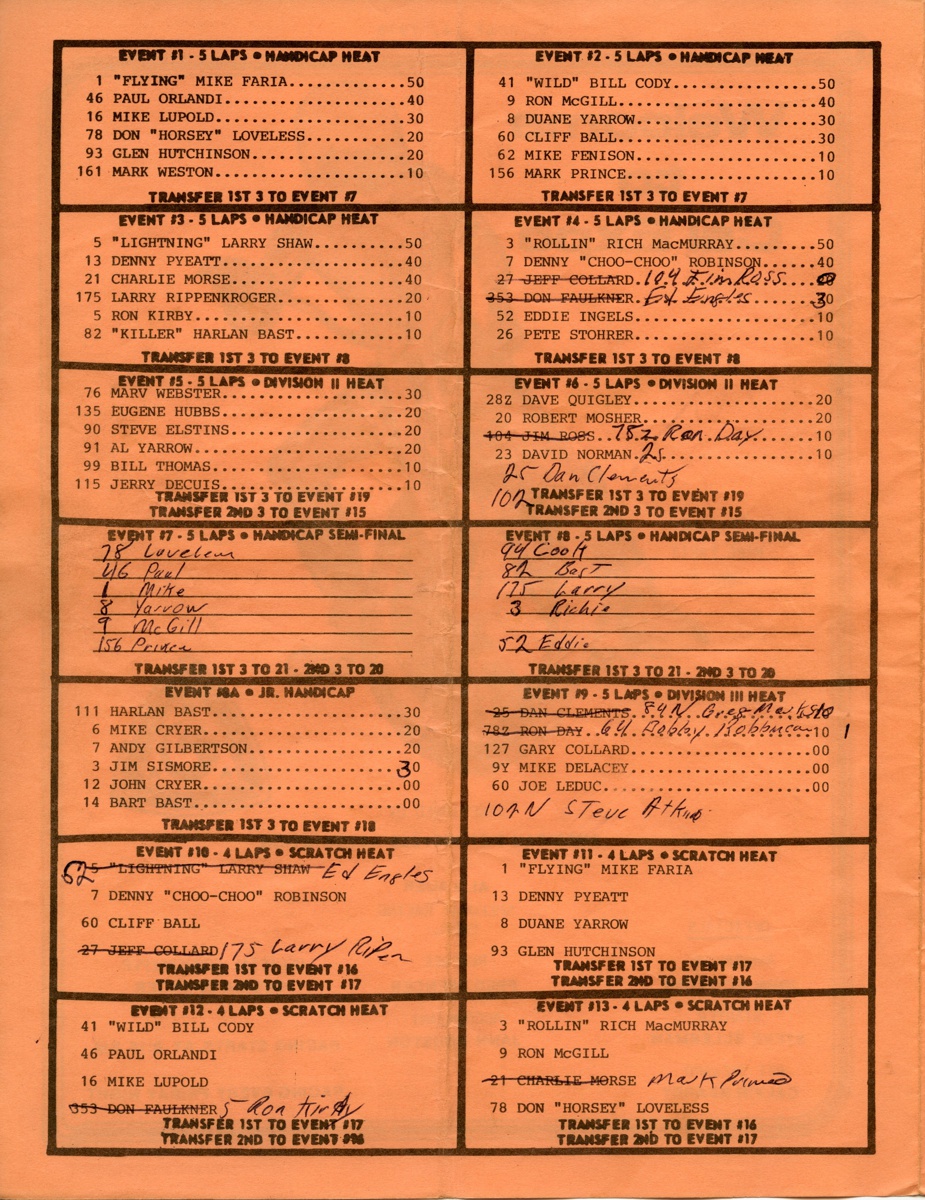 EVENT #1 - 5 LAPS ● HANDICAP HEAT
1 "FLYING" MIKE FARIA..............50
46 PAUL ORLANDI.....................40
16 MIKE LUPOLD......................30
78 DON "HORSEY" LOVELESS............20
93 GLEN HUTCHINSON..................20
161 MARK WESTON......................10
TRANSFER 1ST 3 TO EVENT #7
EVENT #2 - 5 LAPS ● HANDICAP HEAT
41 "WILD" BILL CODY.................50
9 RON McGILL.......................40
8 DUANE YARROW.....................30
60 CLIFF BALL.......................30
62 MIKE FENISON.....................10
156 MARK PRINCE......................10
TRANSFER 1ST 3 TO EVENT #7
EVENT #3 - 5 LAPS ● HANDICAP HEAT
5 "LIGHTNING" LARRY SHAW...........50
13 DENNY PYEATT.....................40
21 CHARLIE MORSE....................40
175 LARRY RIPPENKROGER...............20
5 RON KIRBY........................10
82 "KILLER" HARLAN BAST.............10
TRANSFER 1ST 3 TO EVENT #8
EVENT #4 - 5 LAPS ● HANDICAP HEAT
3 "ROLLIN" RICH MacMURRAY..........50
7 DENNY "CHOO-CHOO" ROBINSON.......40
27 JEFF COLLARD. 104 Jim Ross
353 DON FAULKNER. Ed Engles 30
52 EDDIE INGELS.....................10
26 PETE STOHRER.....................10
TRANSFER 1ST 3 TO EVENT #8
EVENT #5 - 5 LAPS ● DIVISION II HEAT
76 MARV WEBSTER.....................30
135 EUGENE HUBBS.....................20
90 STEVE ELSTINS....................20
91 AL YARROW........................20
99 BILL THOMAS......................10
115 JERRY DECUIS.....................10
TRANSFER 1ST 3 TO EVENT #19
TRANSFER 2ND 3 TO EVENT #15
EVENT #6 - 5 LAPS ● DIVISION II HEAT
28Z DAVE QUIGLEY.....................20
20 ROBERT MOSHER....................20
104 JIM ROSS.. 78z Ron Day.......10
23 DAVID NORMAN. 25.................10
25 Dan Clements
102
TRANSFER 1ST 3 TO EVENT #19
TRANSFER 2ND 3 TO EVENT #15
EVENT #7 - 5 LAPS ● HANDICAP SEMI-FINAL
78 Loveless
46 Paul
1 Mike
8 Yarrow
9 McGill
156 Prince
TRANSFER 1ST 3 TO 21 - 2ND 3 TO 20
EVENT #8 - 5 LAPS ● HANDICAP SEMI-FINAL
82 Bast
175 Larry
3 Richie
52 Eddie
TRANSFER 1ST 3 TO 21 - 2ND 3 TO 20
EVENT #8A ● JR. HANDICAP
111 HARLAN BAST......................30
6 MIKE CRYER.......................20
7 ANDY GILBERTSON..................20
3 JIM SISMORE......................30
12 JOHN CRYER.......................00
14 BART BAST........................00
TRANSFER 1ST 3 TO EVENT #18
EVENT #9 - 5 LAPS ● DIVISION III HEAT
25 DAN CLEMENTS. 84N Greg Marks 10
78Z RON DAY.. 64 Bobby 10 1
127 GARY COLLARD.....................00
9Y MIKE DELACEY.....................00
60 JOE LEDUC........................00
102N Steve
EVENT #10 - 4 LAPS ● SCRATCH HEAT
52 5 "LIGHTNING" LARRY SHAW Ed Engles
7 DENNY "CHOO-CHOO" ROBINSON
60 CLIFF BALL
27 JEFF COLLARD 175 Larry
TRANSFER 1ST TO EVENT #16
TRANSFER 2ND TO EVENT #17
EVENT #11 - 4 LAPS ● SCRATCH HEAT
1 "FLYING" MIKE FARIA
13 DENNY PYEATT
8 DUANE YARROW
93 GLEN HUTCHINSON
TRANSFER 1ST TO EVENT #17
TRANSFER 2ND TO EVENT #16
EVENT #12 - 4 LAPS ● SCRATCH HEAT
41 "WILD" BILL CODY
46 PAUL ORLANDI
16 MIKE LUPOLD
353 DON FAULKNER 5 Ron Kirby
TRANSFER 1ST TO EVENT #17
TRANSFER 2ND TO EVENT #16
EVENT #13 - 4 LAPS ● SCRATCH HEAT
3 "ROLLIN" RICH MacMURRAY
9 RON McGILL
21 CHARLIE MORSE Mark
78 DON "HORSEY" LOVELESS
TRANSFER 1ST TO EVENT #16
TRANSFER 2ND TO EVENT #17